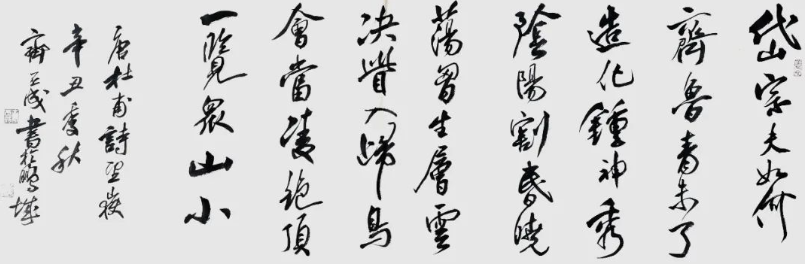 岱宗夫如何
齊魯青未了
造化鍾神秀
陰陽割昏曉
蕩胷生層雲
決眥入歸鳥
會當凌絕頂
一覽衆山小
唐杜甫詩望嶽
辛丑季秋
齊玉成書於鵬城